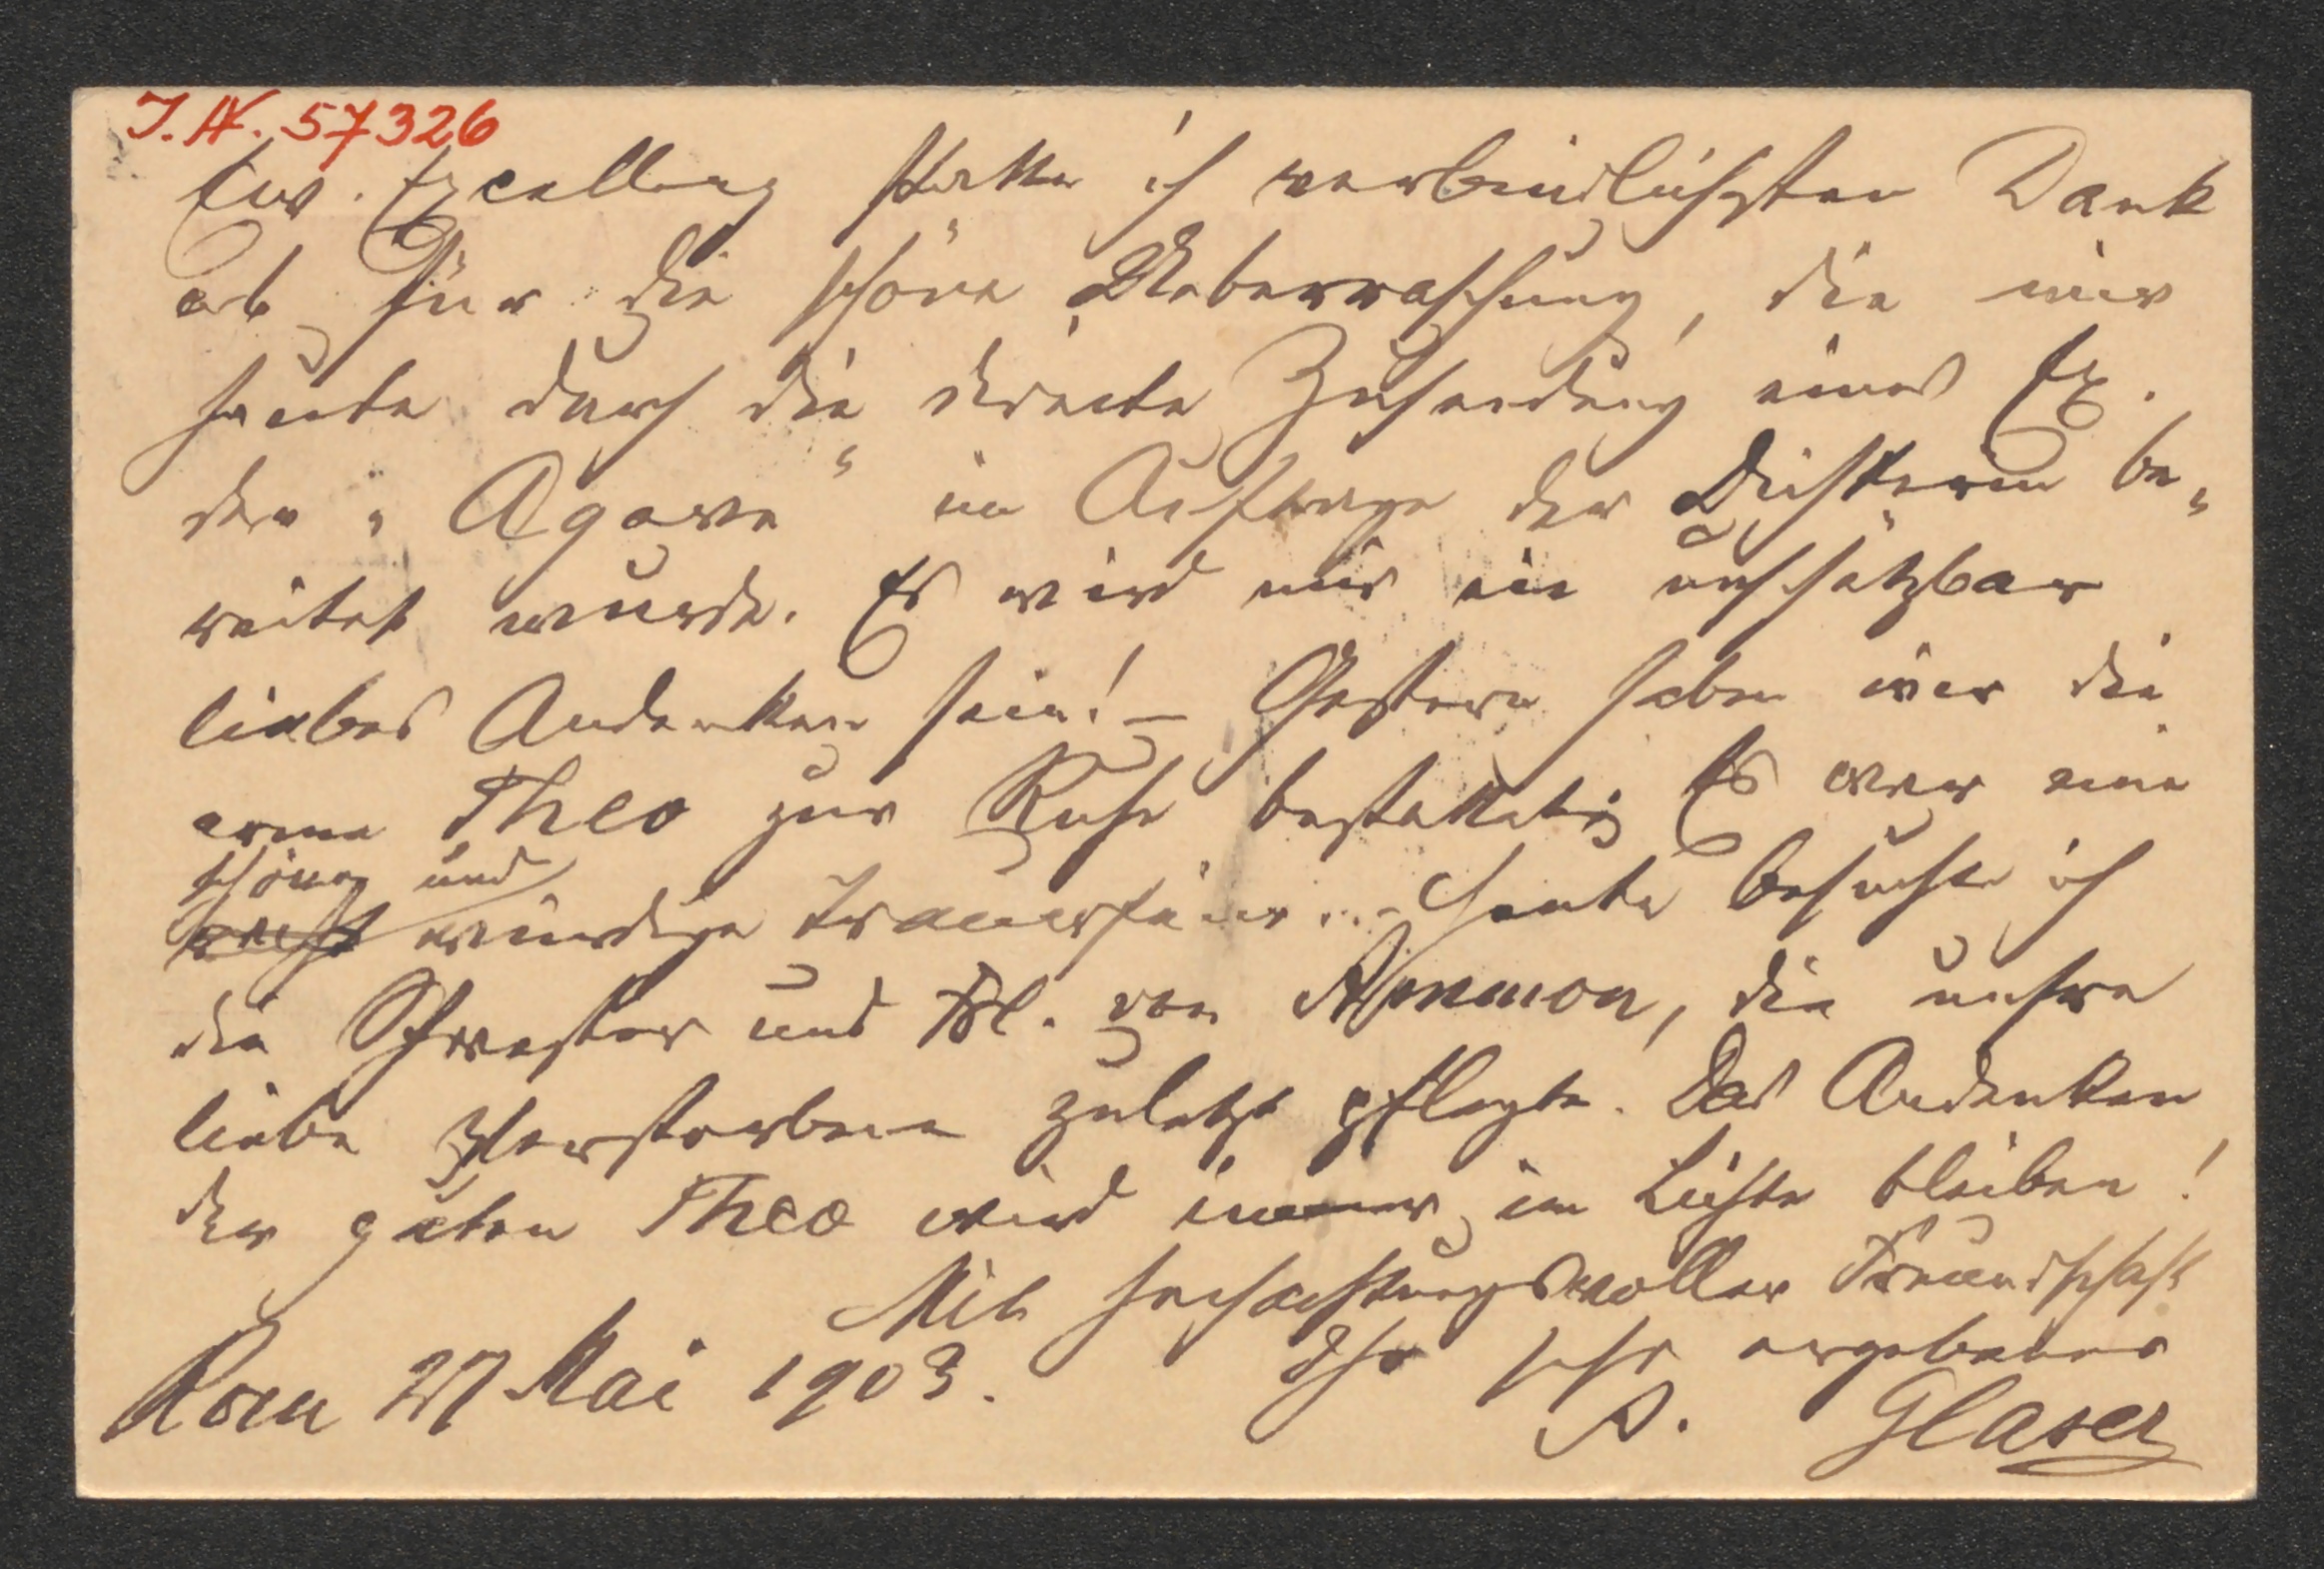 I. N. 57326
Euer. Excellenz statte ich verbindlichsten Dank
ab für die schöne Ueberraschung, die mir
heute durch die directe Zusendung eines Ex.
der „Agave“ im Auftrage der Dichterin be-
reitet wurde. Es wird mir ein unschätzbar
liebes Andenken sein! – Gestern haben wir die
arme Theo zur Ruhe bestattet; Es war eine
schöne und
würdige Trauerfeier... Heute besuchte ich
die Schwester und Frl. von, die unsre
liebe Verstorbene zuletzt pflegte. Das Andenken
der guten Theo wird immer im Lichte bleiben!
Mit hochachtungsvoller Freundschaft
Ihr sehr ergebener
Rom 27 Mai 1903.
Glaser